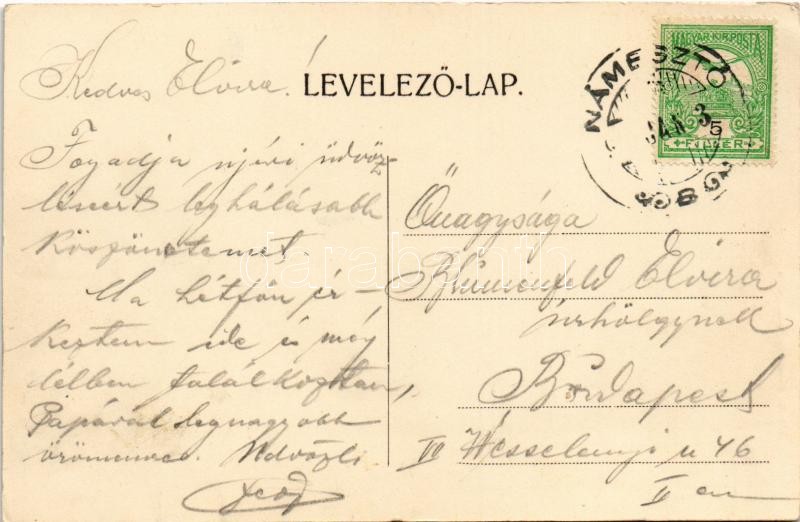 Kedves Elvira!
LEVELEZŐ-LAP.
MAGYAR KIR. POSTA
5
FILLÉR
NÁMESZTÓ
JAN 3
Fogadja ujévi üdvöz-
létéért leghálásabb
köszönetemet.
Ma hétfőn ér-
keztem ide és még
délben találkoztam,
Papával legnagyobb
örömemre. Üdvözli
Őnagysága
Blumenfeld Elvira
úrhölgynek
Budapest
Wesselenyi u 46
I em
darabanth